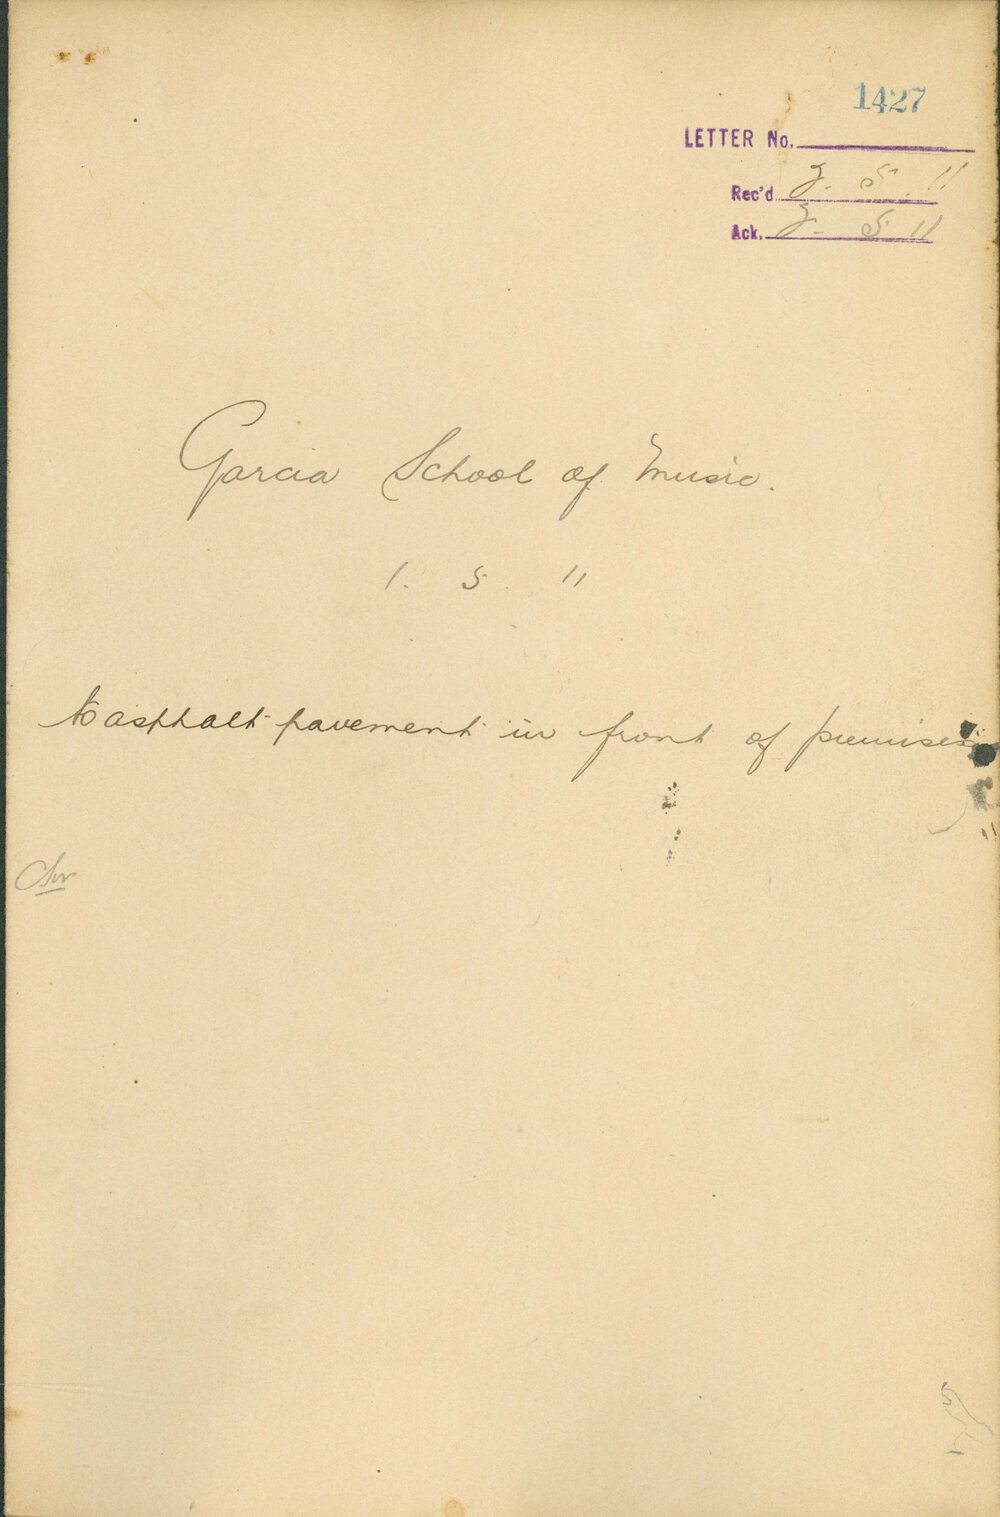 1427
LETTER No.
Rec'd 3. 5. 11
Ack. 3. 5 11
Garcia School of Music.
1. 5. 11
to asphalt pavement in front of premises